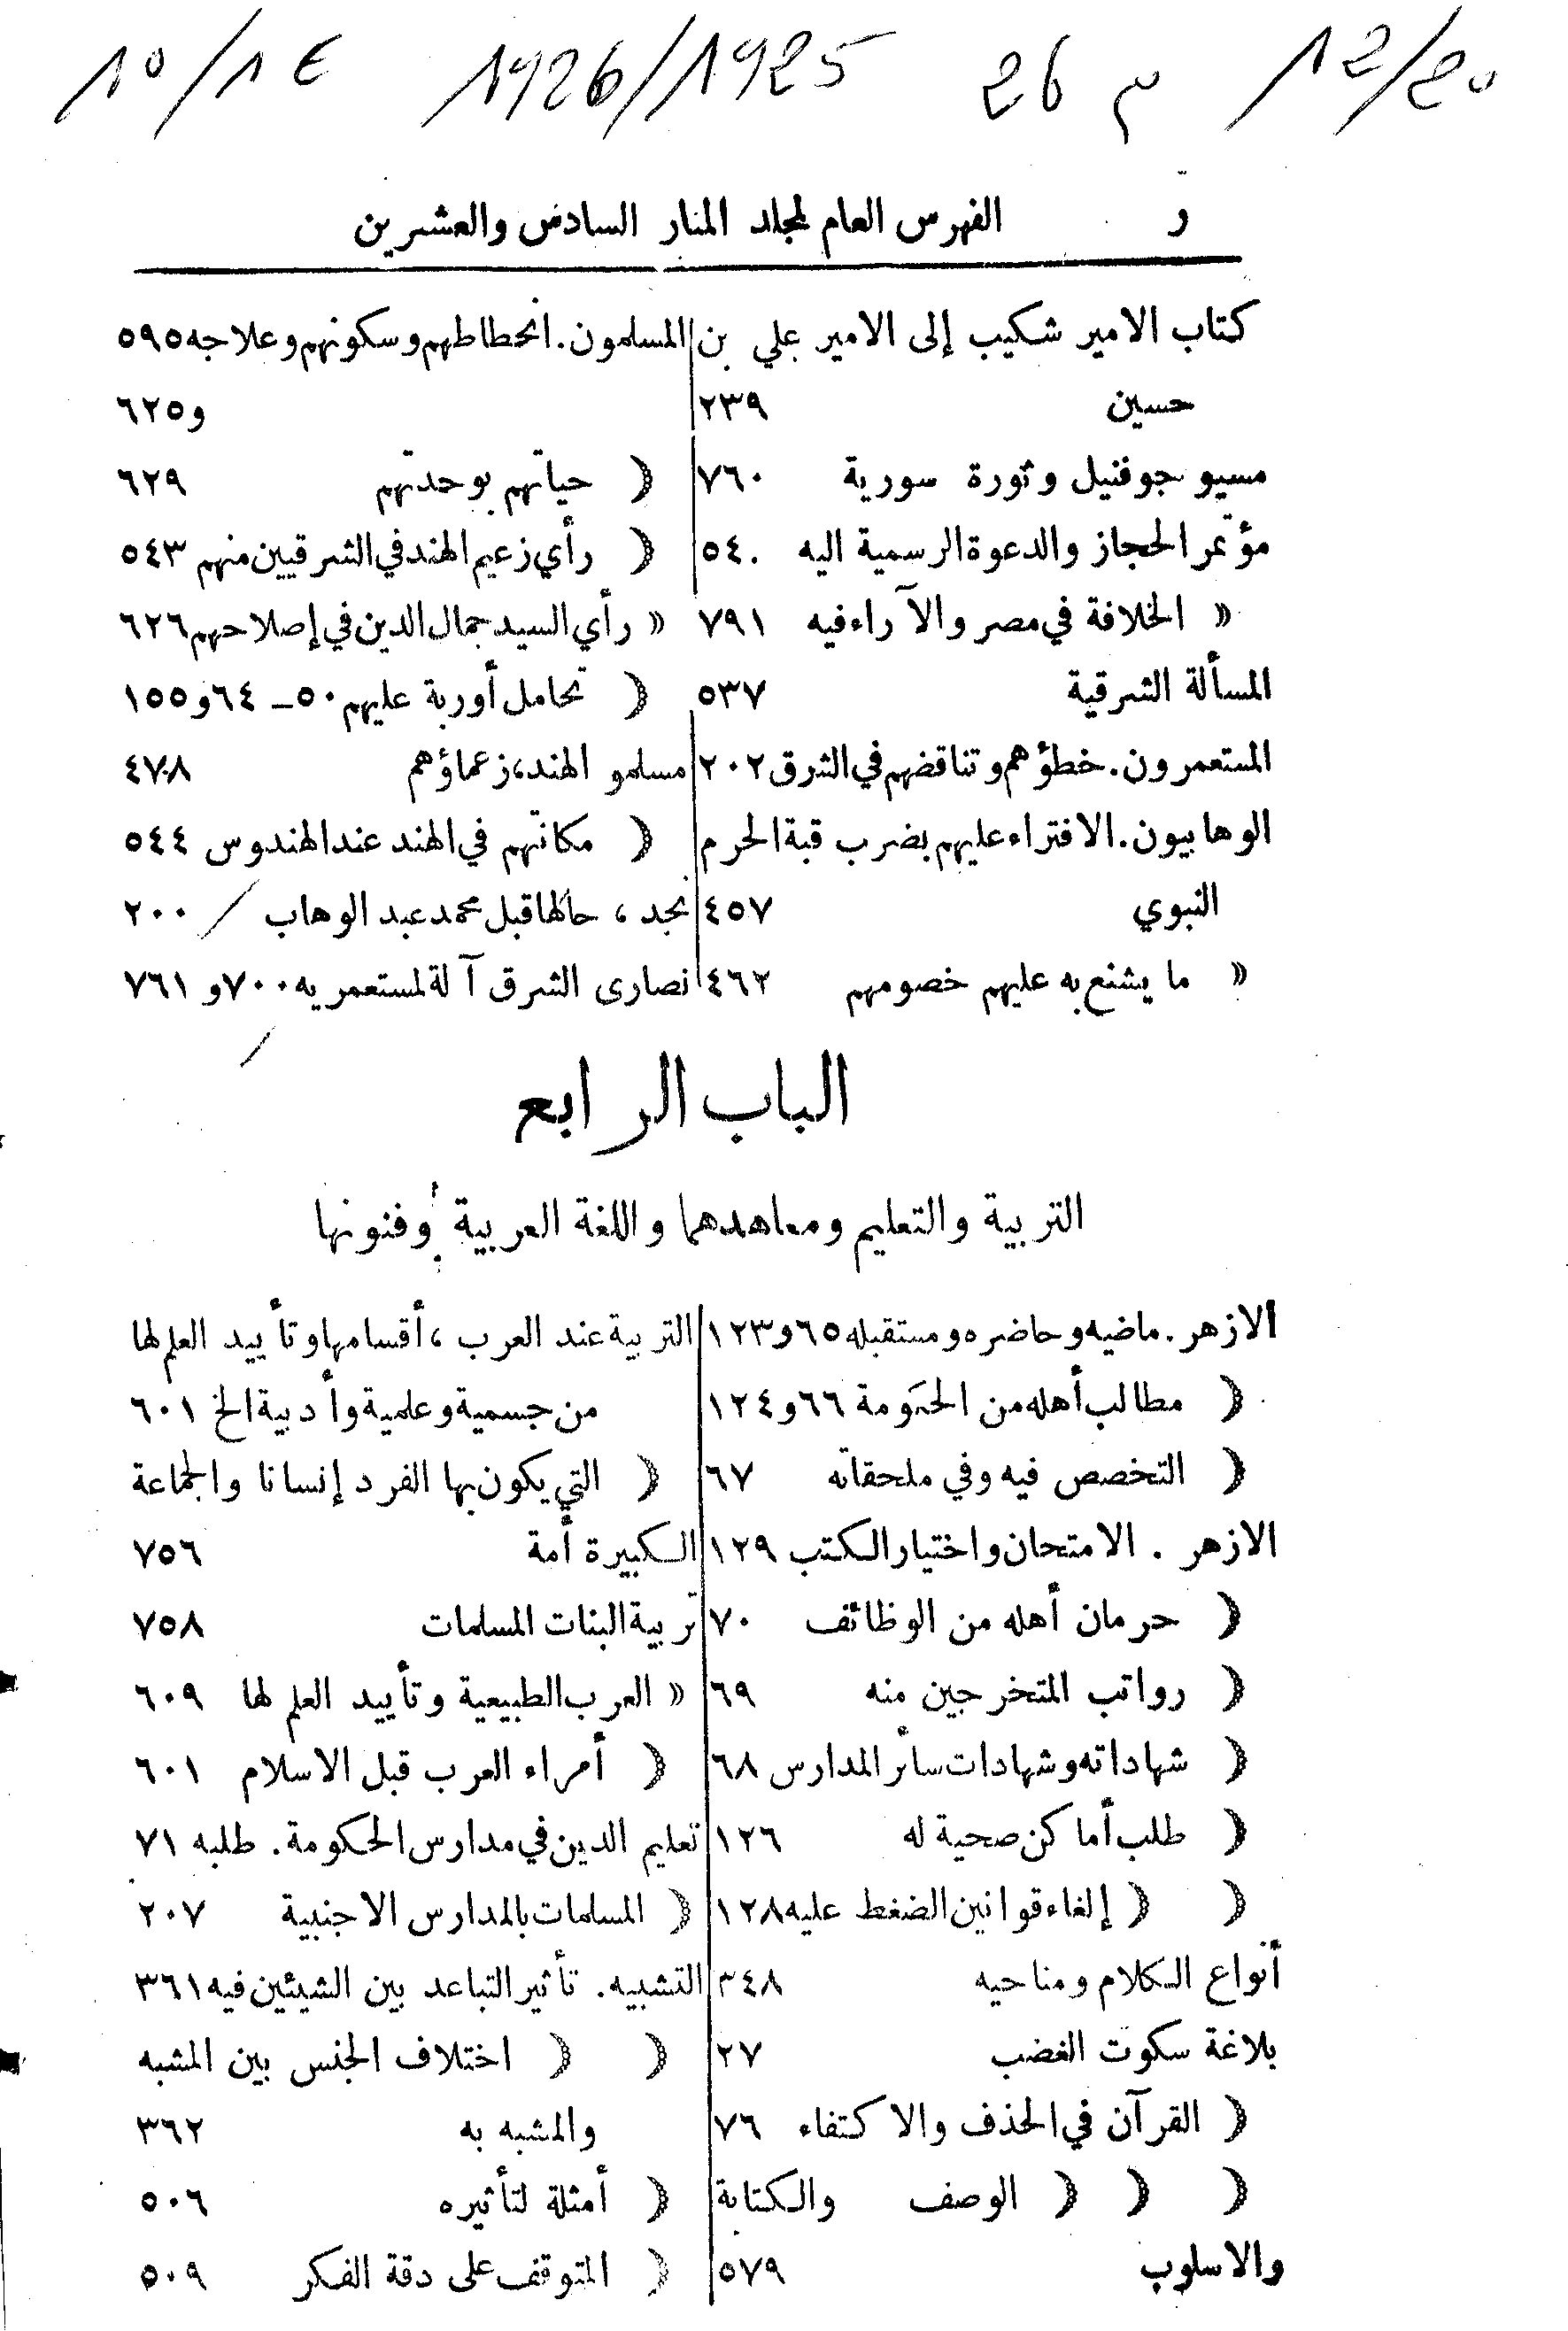 10/14 1926/1925 م 26 12/20
و الفهرس العام لمجلد المنار السادس والعشرين
كتاب الامير شكيب إلى الامير علي بن
حسين ٢٣٩
مسيو جوفنيل وثورة سورية ٧٦٠
مؤتمر الحجاز والدعوة الرسمية اليه ٥٤٠
« الخلافة في مصر والآراء فيه ٧٩١
المسألة الشرقية ٥٣٧
المستعمرون. خطؤهم وتناقضهم في الشرق ٢٠٢
الوهابيون. الافتراء عليهم بضرب قبة الحرم
النبوي ٤٥٧
« ما يشنع به عليهم خصومهم ٤٦٢
المسلمون. انحطاطهم وسكونهم وعلاجه ٥٩٥
و٦٢٥
« حياتهم بوحدتهم ٦٢٩
« رأي زعيم الهند في الشرقيين منهم ٥٤٣
« رأي السيد جمال الدين في إصلاحهم ٦٢٦
« تحامل أوربة عليهم ٥٠ – ٦٤ و١٥٥
مسلمو الهند، زعماؤهم ٤٧٨
« مكانتهم في الهند عند الهندوس ٥٤٤
نجد ، حالها قبل محمد عبد الوهاب ٢٠٠
نصارى الشرق آلة لمستعمريه ٧٠٠ و ٧٦١
الباب الرابع
التربية والتعليم ومعاهدهما واللغة العربية وفنونها
الازهر. ماضيه وحاضره ومستقبله ٦٥ و١٢٣
« مطالب أهله من الحكومة ٦٦ و١٢٤
« التخصص فيه وفي ملحقاته ٦٧
الازهر . الامتحان واختيار الكتب ١٢٩
« حرمان أهله من الوظائف ٧٠
« رواتب المتخرجين منه ٦٩
« شهاداته وشهادات سائر المدارس ٦٨
« طلب أماكن صحية له ١٢٦
« « إلغاء قوانين الضغط عليه ١٢٨
أنواع الكلام ومناحيه ٣٤٨
بلاغة سكوت الغضب ٢٧
« القرآن في الحذف والاكتفاء ٧٦
« « « الوصف والكتابة
والاسلوب ٥٧٩
التربية عند العرب ، أقسامها وتأييد العلم لها
من جسمية وعلمية وأدبية الخ ٦٠١
« التي يكون بها الفرد إنسانا والجماعة
الكبيرة أمة ٧٥٦
تربية البنات المسلمات ٧٥٨
« العرب الطبيعية وتأييد العلم لها ٦٠٩
« أمراء العرب قبل الاسلام ٦٠١
تعليم الدين في مدارس الحكومة. طلبه ٧١
« المسلمات بالمدارس الاجنبية ٢٠٧
التشبيه. تأثير التباعد بين الشيئين فيه ٣٦١
« « اختلاف الجنس بين المشبه
والمشبه به ٣٦٢
« أمثلة لتأثيره ٥٠٦
« المتوقف على دقة الفكر ٥٠٩